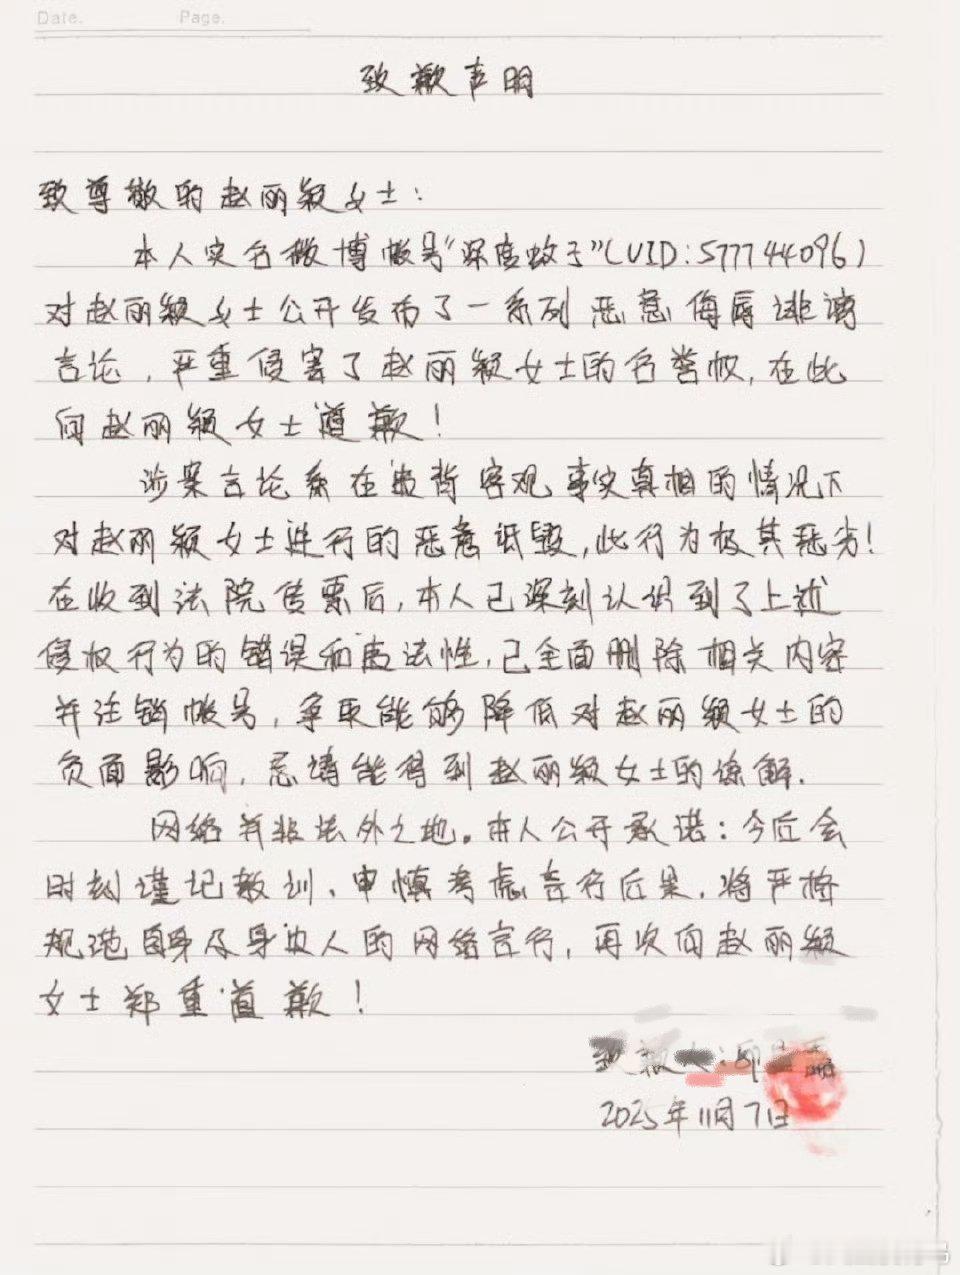 Date.　　Page.
致歉声明
致尊敬的赵丽颖女士：
本人实名微博帐号“深度蚊子”（UID:577744096）
对赵丽颖女士公开发布了一系列恶意侮辱诽谤
言论，严重侵害了赵丽颖女士的名誉权，在此
向赵丽颖女士道歉！
涉案言论系在违背客观事实真相的情况下
对赵丽颖女士进行的恶意诋毁，此行为极其恶劣！
在收到法院传票后，本人已深刻认识到了上述
侵权行为的错误和违法性，已全面删除相关内容
并注销帐号，争取能够降低对赵丽颖女士的
负面影响，恳请能得到赵丽颖女士的谅解．
网络并非法外之地。本人公开承诺：今后会
时刻谨记教训、审慎考虑言行后果，将严格
规范自身及身边人的网络言行，再次向赵丽颖
女士郑重道歉！
致歉人：
2025年11月7日